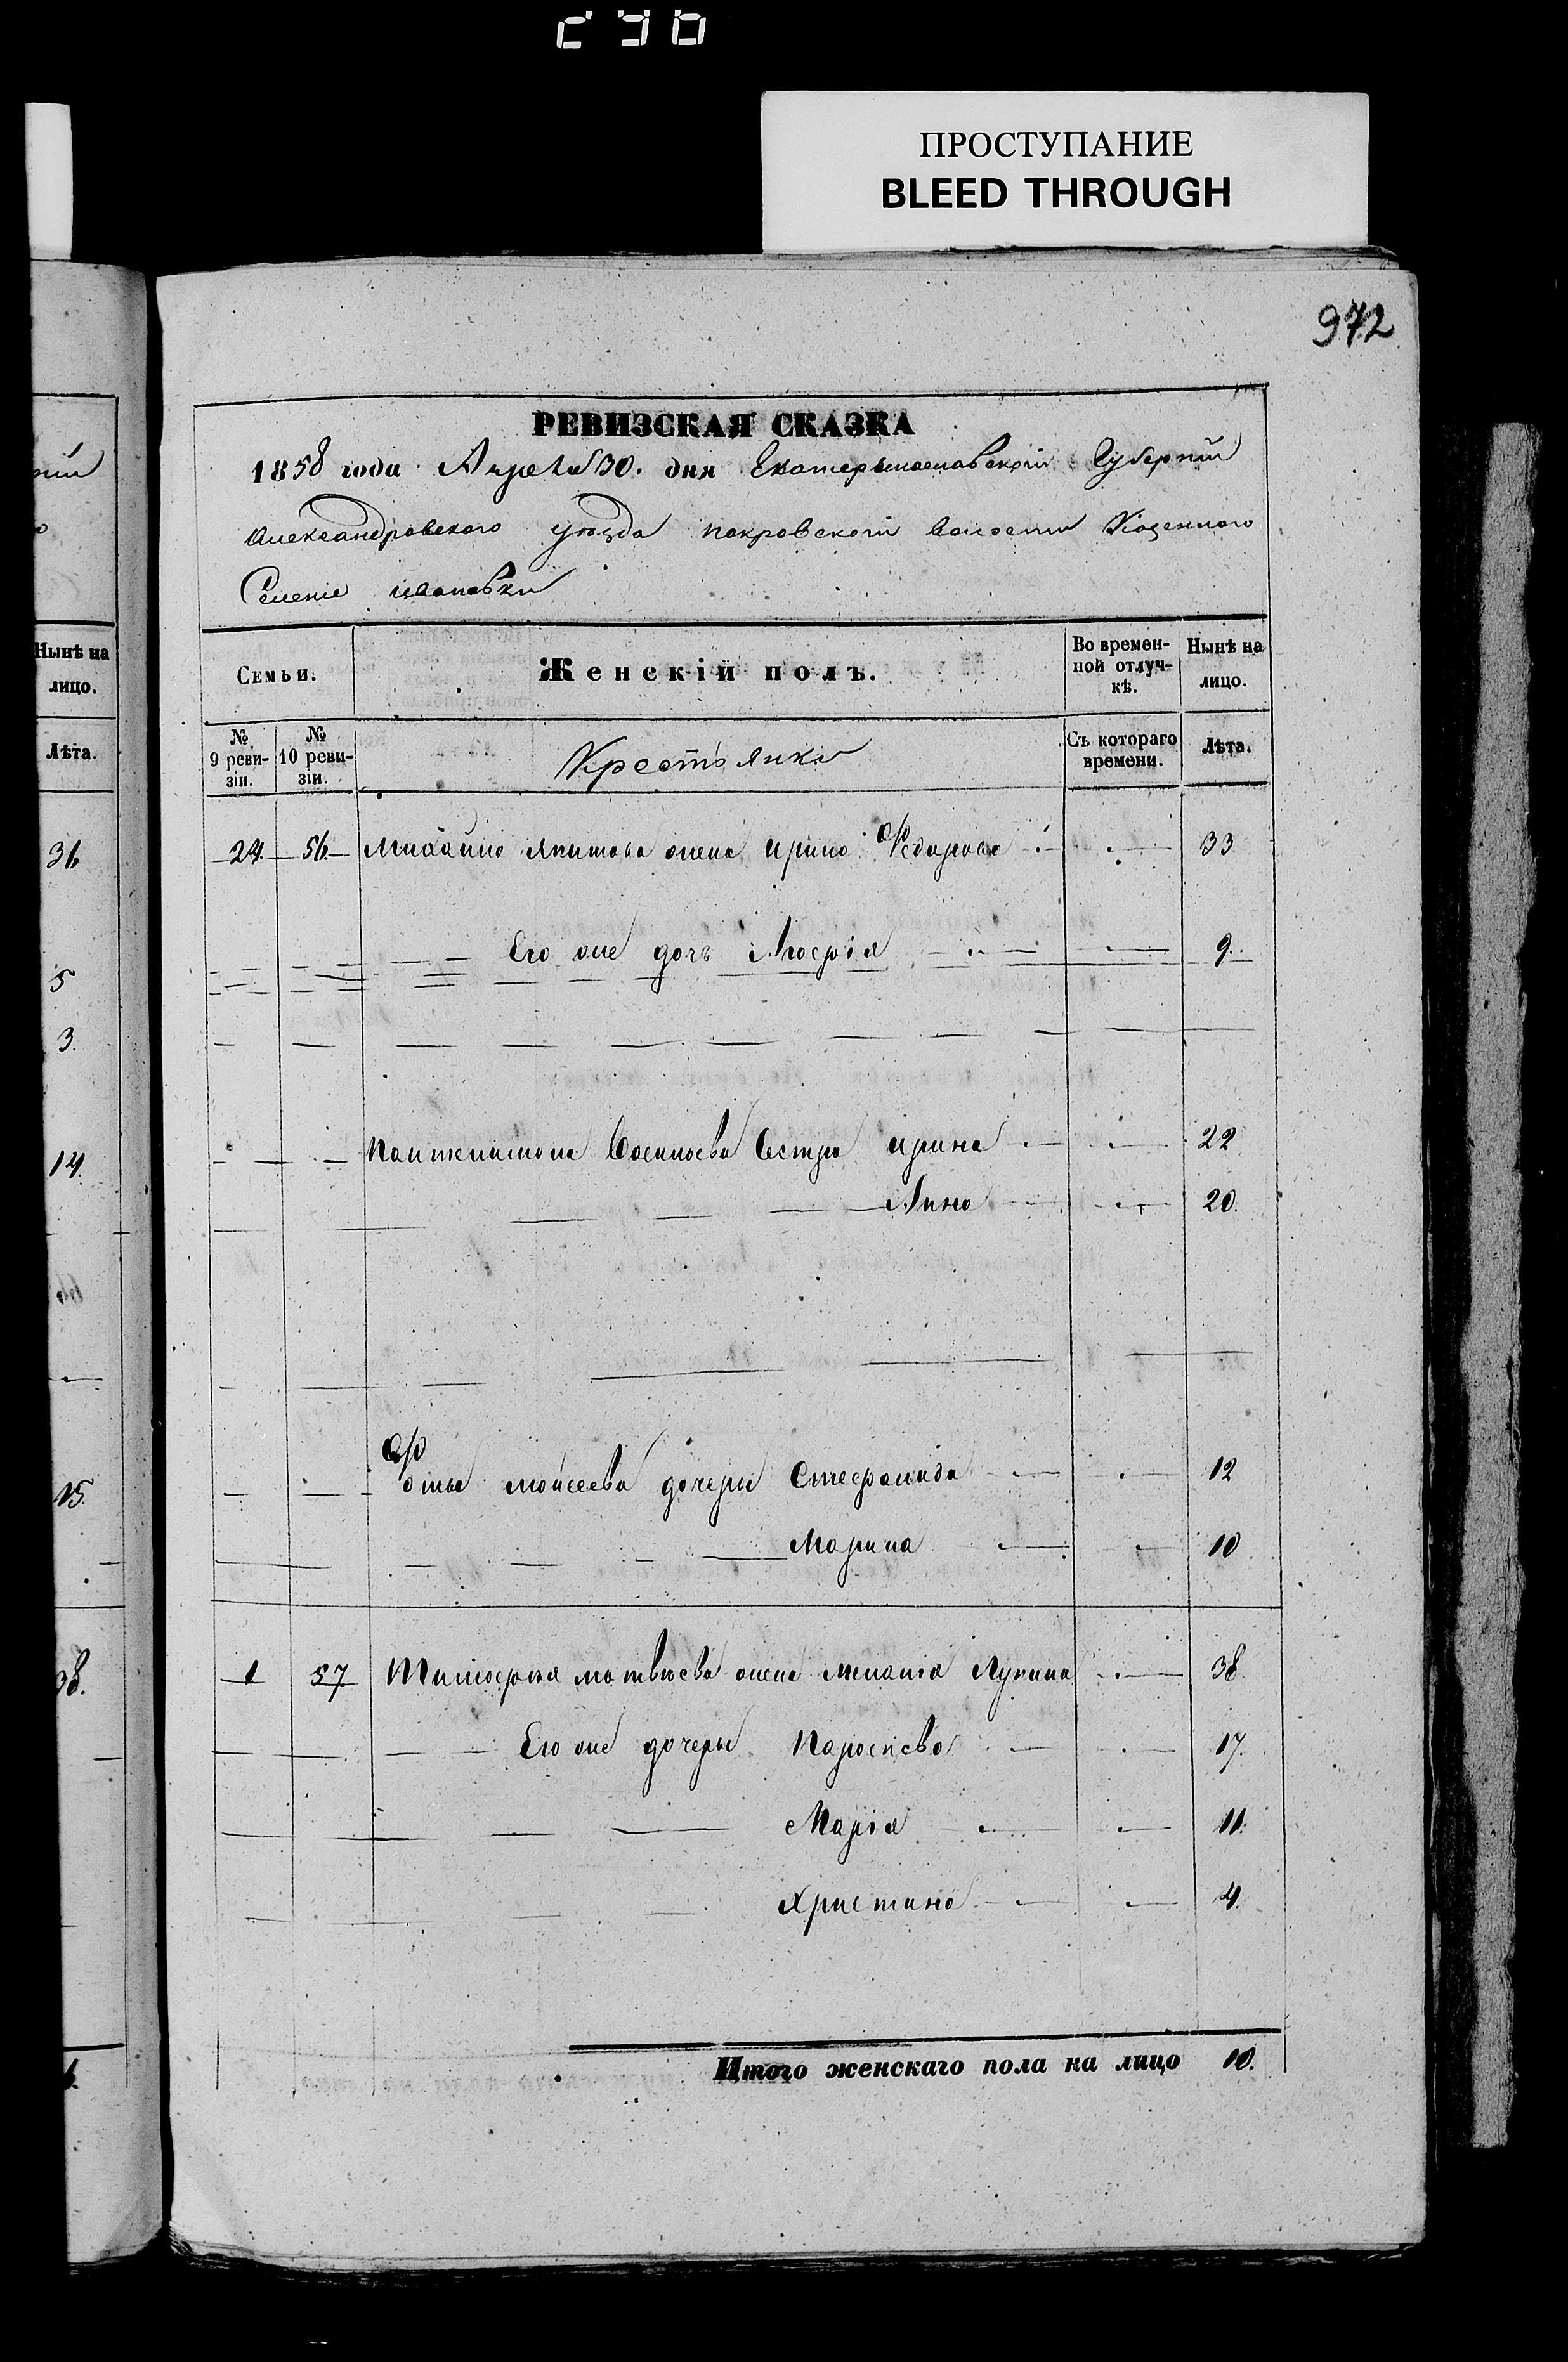 ПРОСТУПАНИЕ
BLEED THROUGH
972
РЕВИЗСКАЯ СКАЗКА
1858 года Апреля 30. дня Екатеринославской Губернии
Александровского уезда покровской волости Казенного
Селения ивановки
Семьи. Женскій полъ. Во временной отлучкѣ. Нынѣ на лицо.
№ 9 ревизіи. № 10 ревизіи. Крестьянки Съ котораго времени. Лѣта.
24. 56. Михайла жена ирина Федорова 33
Его же дочь 9.
Пантелимона Сестра ирина 22
Анна 20.
Фотия моисеева дочери Стефанида 12
Марина 10
1 57 Тимофея матвѣева жена меланія Лукина 38
Его же дочери Параскева 17.
Марія 11.
Христина 4.
Итого женскаго пола на лицо 10.
Нынѣ на лицо.
Лѣта.
36
5
3.
14.
15.
38.